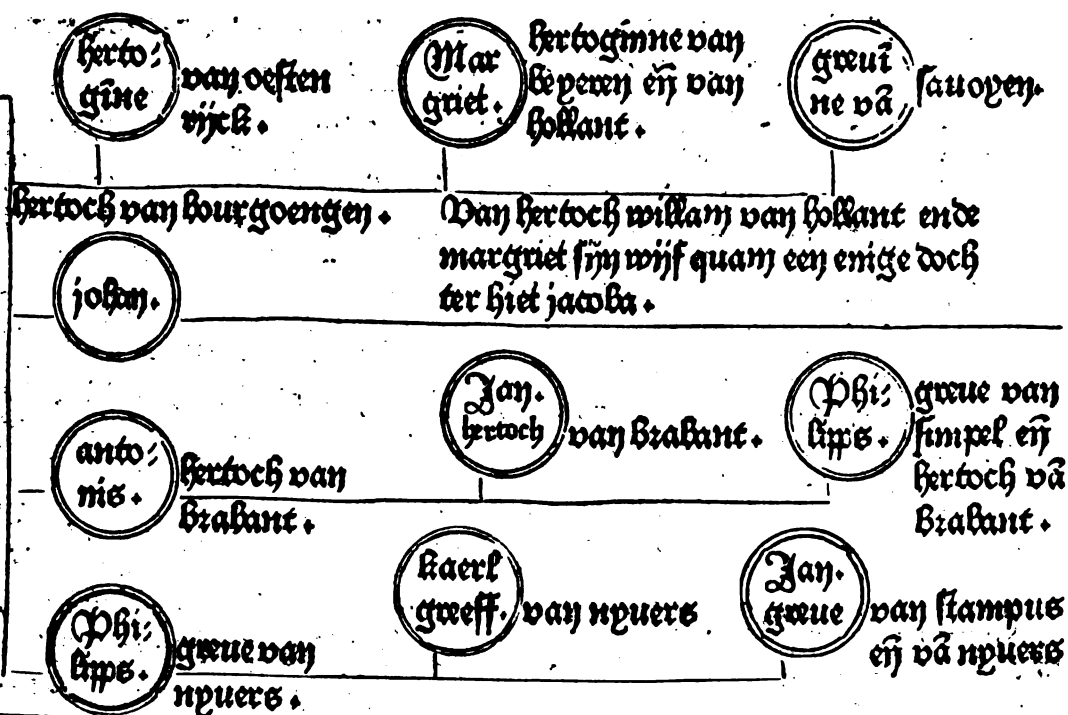 herto⸗
gīne
van oesten
rijck.
Mar
griet.
hertoginne van
beyeren eñ van
hollant.
greuī
ne vā
sauoyen.
hertoch van bourgoengen.
Van hertoch willam van hollant ende
margriet sijn wijf quam een enige doch
ter hiet jacoba.
johan.
anto⸗
nis.
hertoch van
brabant.
Jan.
hertoch
van brabant.
Phi⸗
lipps.
greue van
simpel eñ
hertoch vā
brabant.
Phi⸗
lipps.
greue van
nyuers.
kaerl
greeff.
van nyuers
Jan.
greue
van stampus
eñ vā nyuers